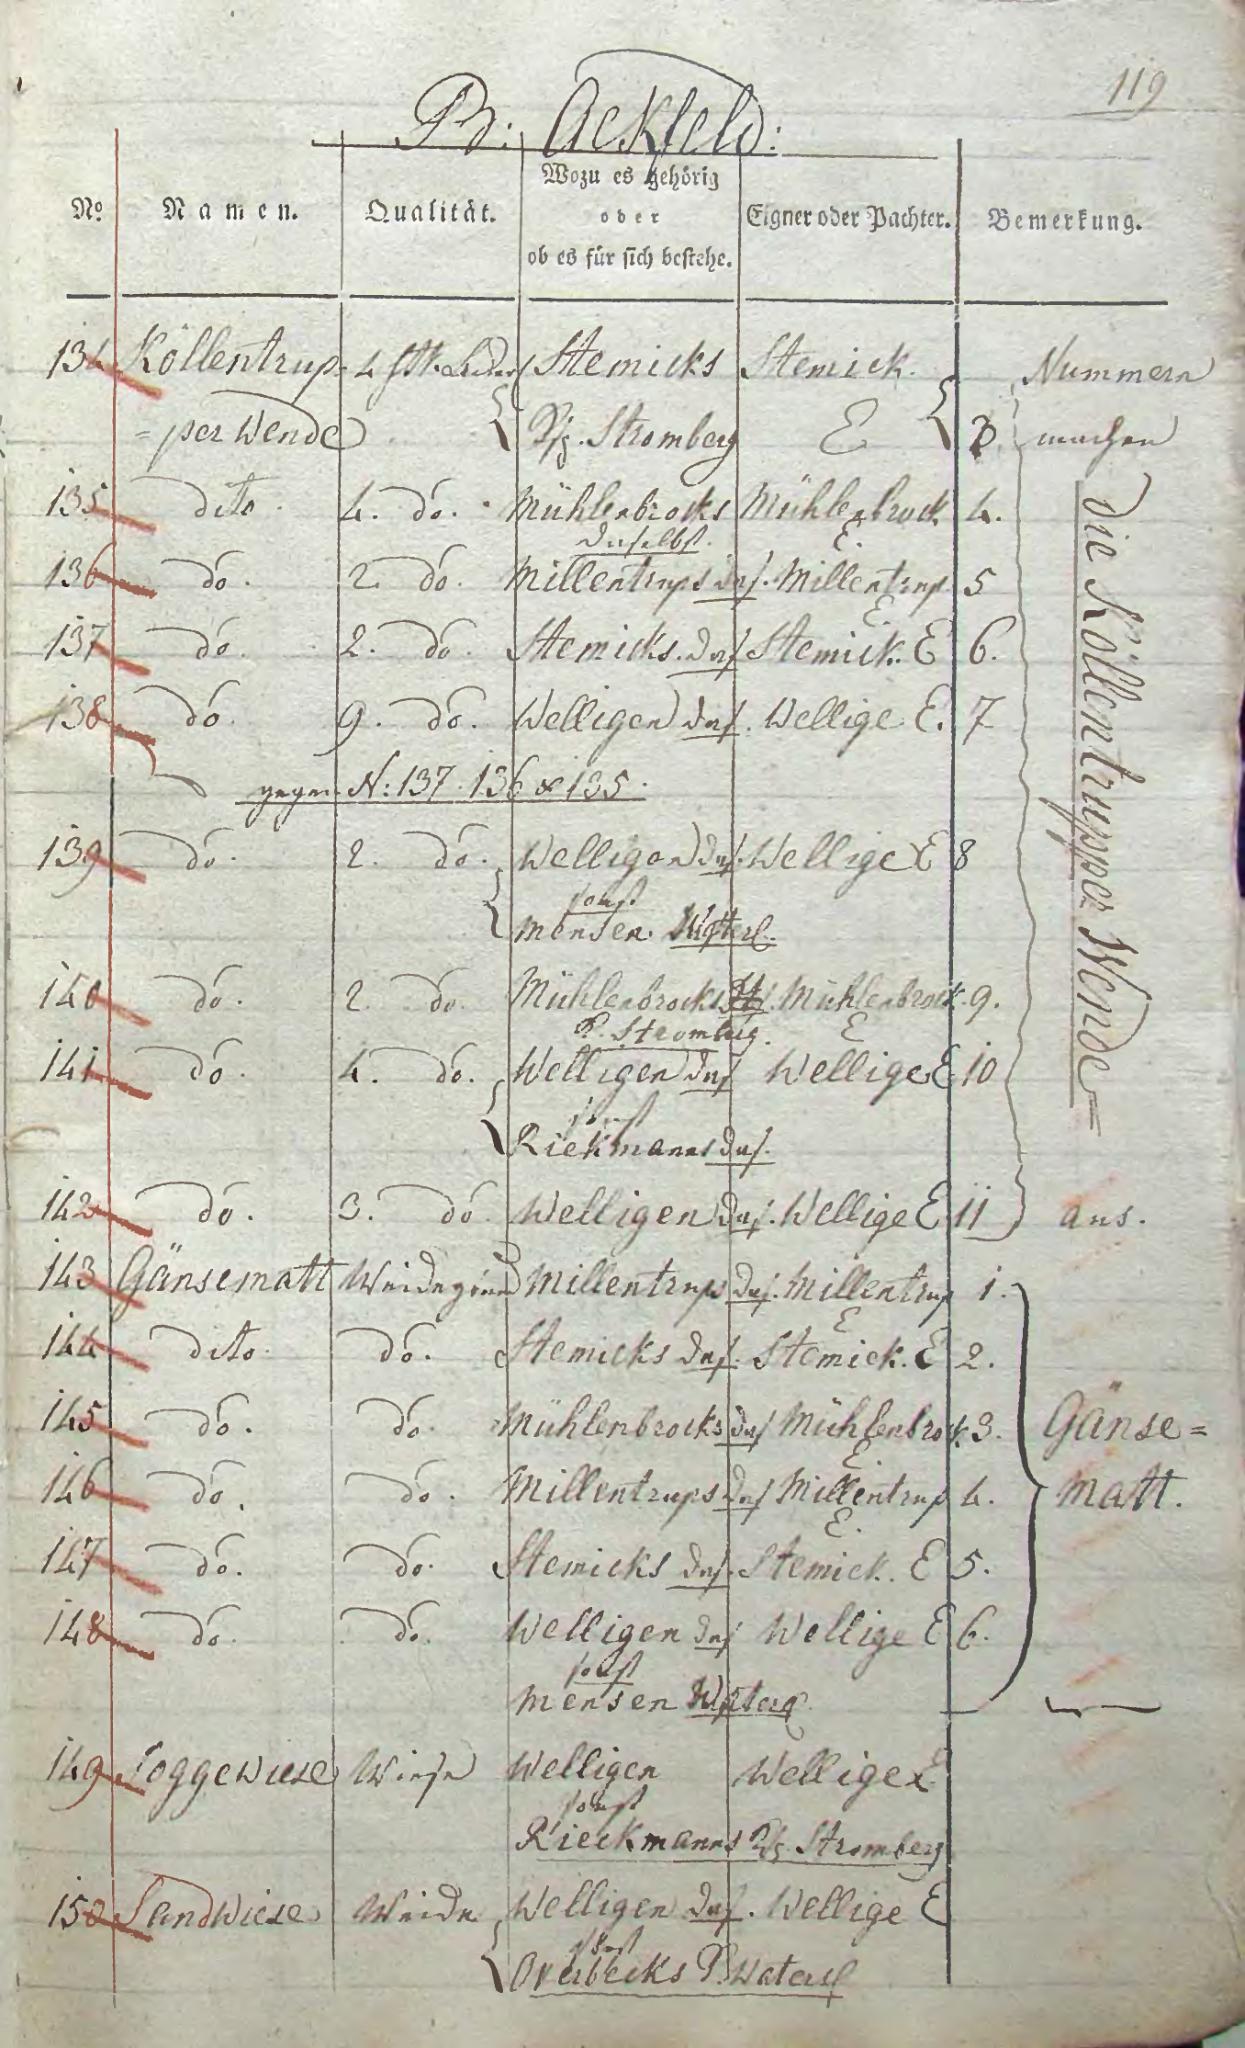 119
B: Ackfeld:
No. Namen. Qualität. Wozu es gehörig oder ob es für sich bestehe. Eigner oder Pachter. Bemerkung.
134 Köllentrup- 4 Stk. Stemicks Stemick. Nummern
= per Wende { Psp. Stromberg E { 3 machen
135 dito. 4. do. Mühlenbrocks Mühlenbrock 4.
daselbst. E
136 do. 2. do. Millentrups das. Millentrup 5
E
137 do. 2. do. Stemicks. das Stemick. E 6.
138 do. 9. do. Welligen das. Wellige E. 7
gegen N: 137. 136 & 135.
139 do. 2. do. Welligen das. Wellige E 8
sonst
{ Mensen.
140 do. 2. do. Mühlenbrocks Mühlenbrock. 9.
P. Stromberg. E
141 do. 4. do. Welligen das Wellige E 10
sonst
{ Riekmanns das.
142 do. 3. do Welligen das. Wellige E 11 } aus.
die Köllentrupper Wende
143 Gänsematt Weidegrund Millentrups das. Millentrup 1.
E
144 dito. do. Stemicks das. Stemick. E 2.
145 do. do. Mühlenbrocks das Mühlenbrock. 3. Gänse=
E
146 do. do. Millentrups das Millentrup 4. matt.
E.
147 do. do. Stemicks das. Stemick. E 5.
148 do. do. Welligen das Wellige E 6.
sonst
Mensen
149 Poggewiese Wiese Welligen Wellige E
sonst
Rieckmanns Psp. Stromberg
150 Sandwiese Weide Welligen das. Wellige E
sonst
{ Overbecks P. Watersl